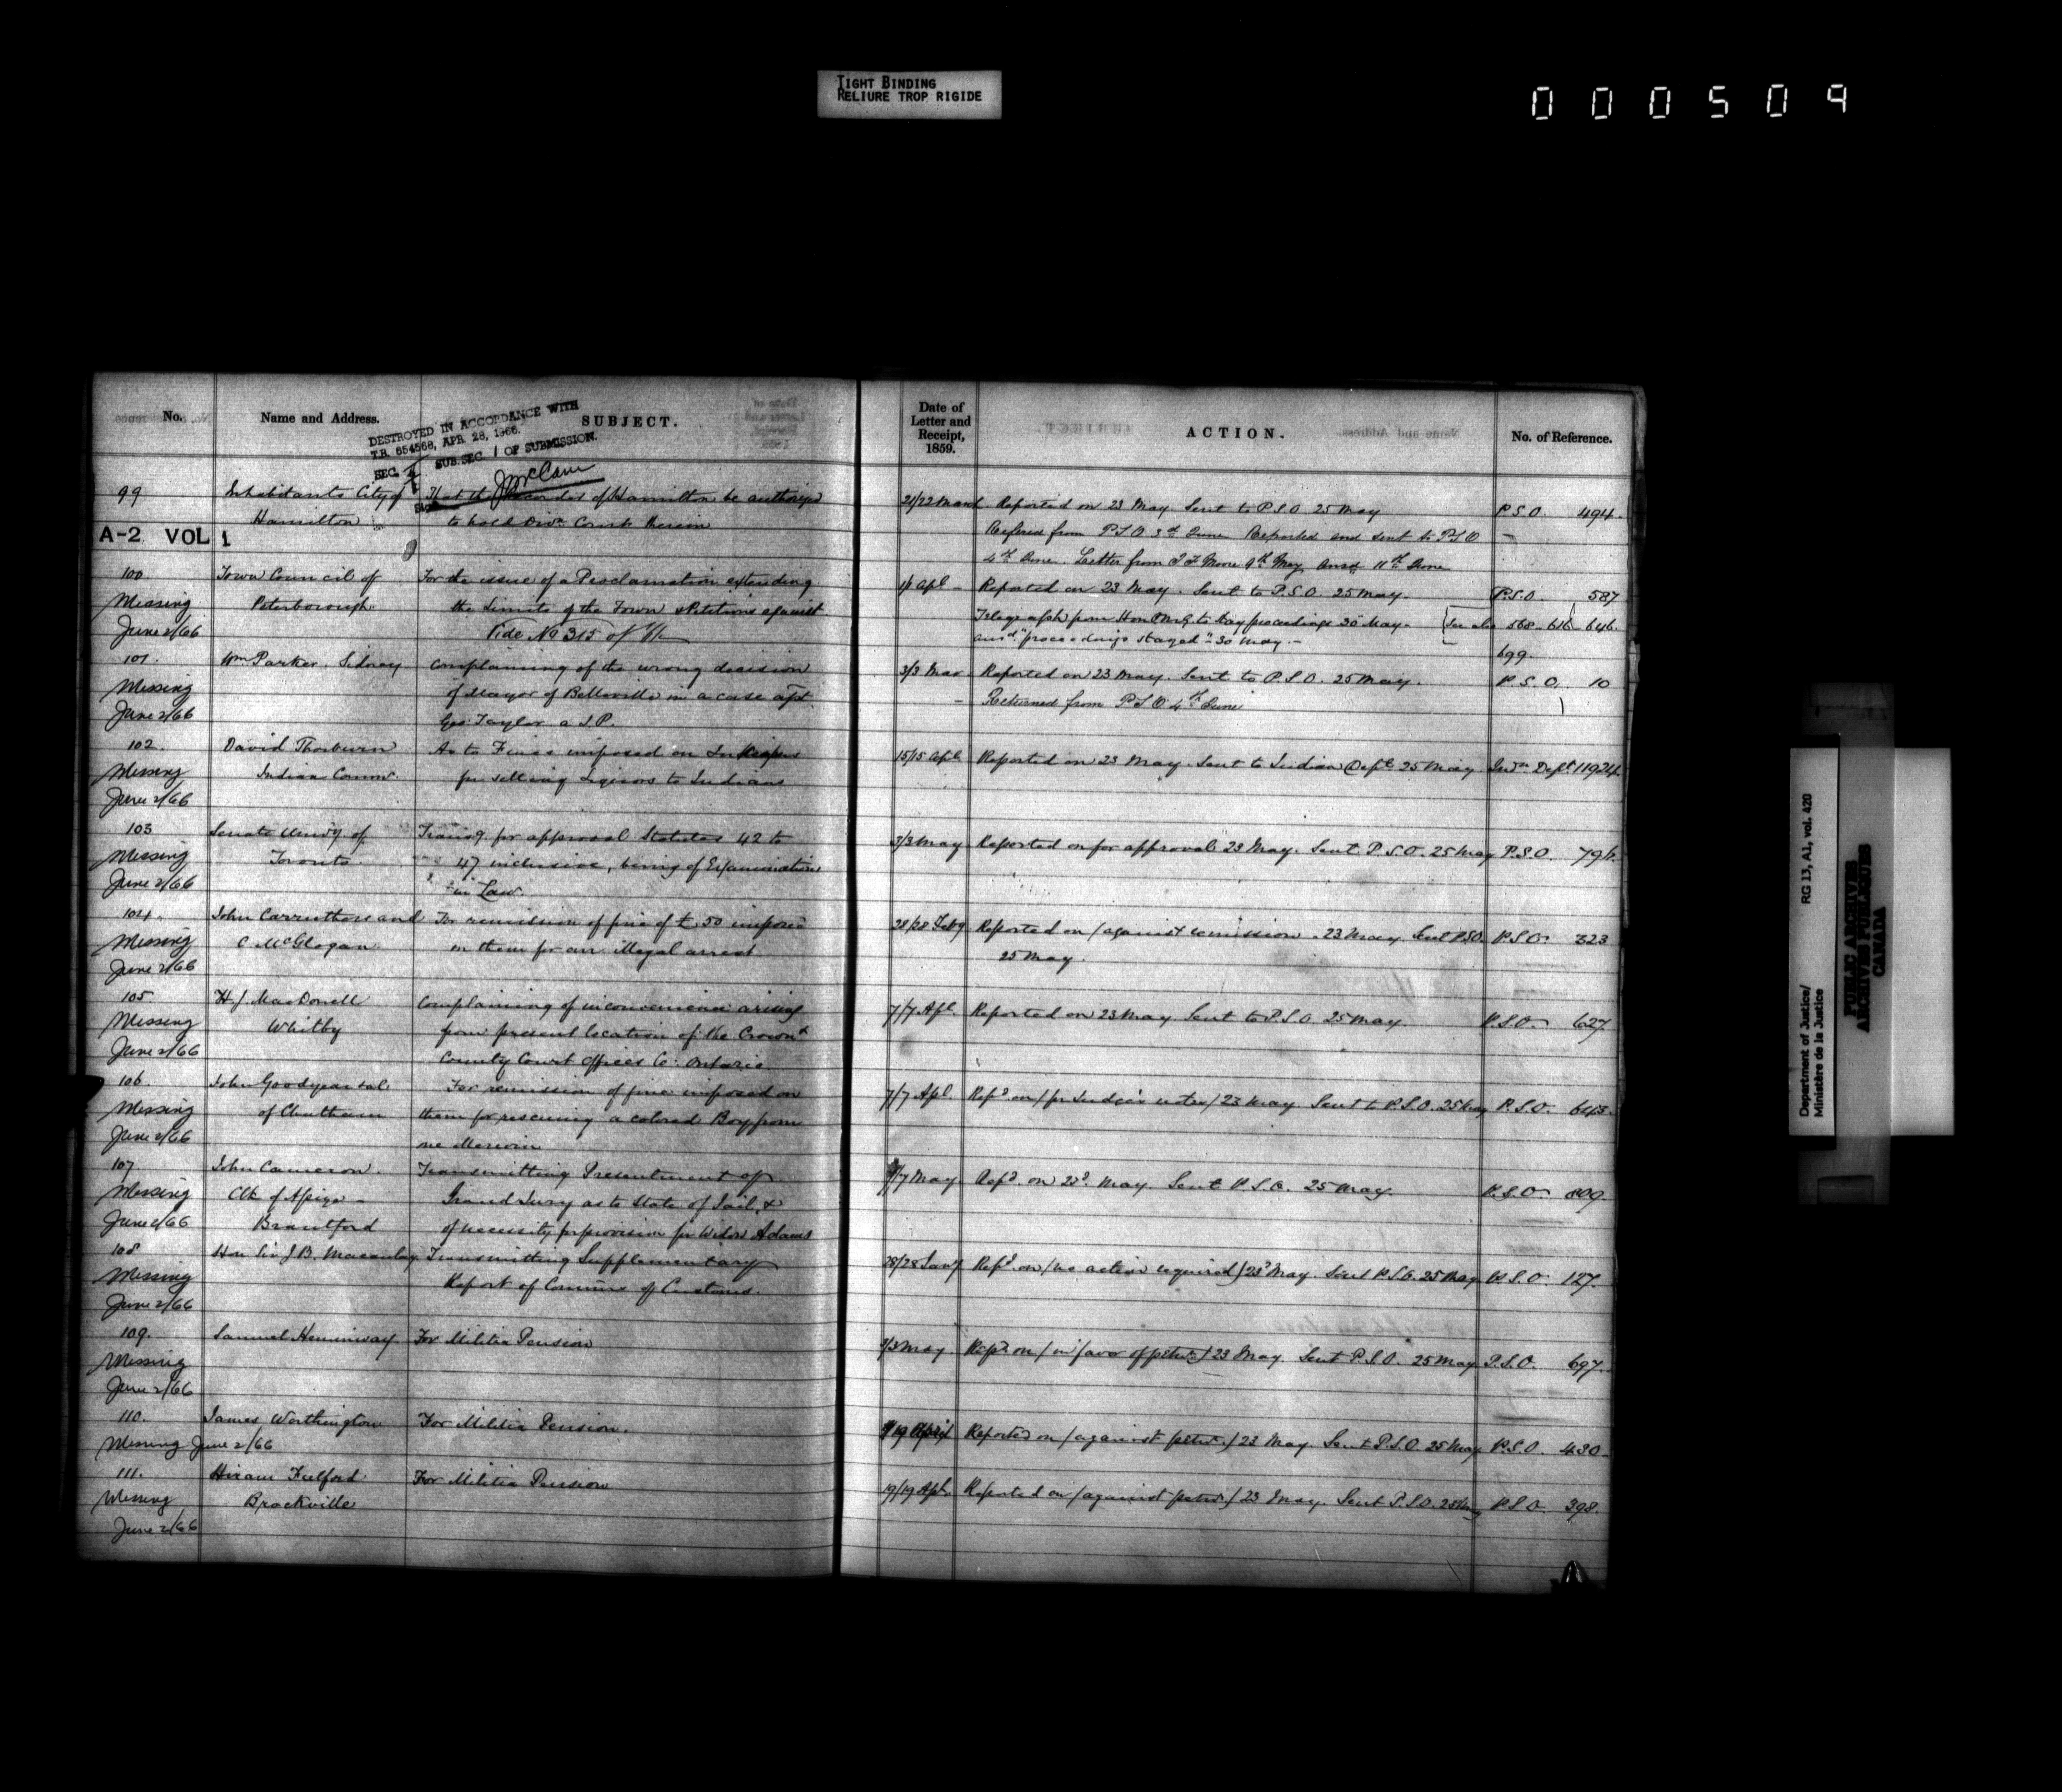 TIGHT BINDING
RELIURE TROP RIGIDE
000509
No. Name and Address. SUBJECT.
DESTROYED IN ACCORDANCE WITH
T.B. 654568, APR. 28, 1966.
SEC. SUB. SEC. 1 OF SUBMISSION.
99 Inhabitants City of That the Recorder of Hamilton be authorized
Hamilton to hold Divn Courts therein
A-2 VOL 1
100 Town Council of For the issue of a Proclamation extending
Missing Peterborough the Limits of the Town & Petitions against
June 2/66 Vide No 315 of
101 Wm Parker. Sidney Complaining of the wrong decision
Missing of Mayor of Belleville in a case agst
June 2/66 Geo: Taylor a J.P.
102. David Thorburn As to Fines imposed on Innkeepers
Missing Indian Commr for selling Liquors to Indians
June 2/66
103 Senate Univy of Transg. for approval Statutes 42 to
Missing Toronto 47 inclusive, being of Examination
June 2/66 in Law.
104. John Carruthers and For remission of fine of £50 imposed
Missing C McGlogan on them for an illegal arrest
June 2/66
105. H J MacDonell Complaining of inconvenience arising
Missing Whitby from present location of the Crown &
June 2/66 County Court Offices Co: Ontario
106. John Goodyear et al For remission of fine imposed on
Missing of Chatham them for rescuing a colored Boy from
June 2/66 one Merwin
107. John Cameron. Transmitting Presentment of
Missing Clk of Assize - Grand Jury as to State of Jail, &
June 2/66 Brantford of necessity for provision for Widow Adams
108 Hon Sir J B. Macaulay Transmitting Supplementary
Missing Report of Commrs of Customs.
June 2/66
109. Samuel Hemmway For Militia Pension
Missing
June 2/66
110. James Worthington For Militia Pension.
Missing June 2/66
111. Hiram Fulford For Militia Pension
Missing Brockville
June 2/66
Date of
Letter and
Receipt,
1859.
ACTION. No. of Reference.
21/22 March Reported on 23 May Sent to P.S.O. 25 May P.S.O. 494.
Referred from P.S.O. 3rd June Reported and sent to P.S.O
4th June. Letter from 9th May, ansd 11th June
1/1 Apl - Reported on 23 May. Sent to P.S.O. 25 May P.S.O. 587
Telegraph from Hon to stay proceedings 30 May - See also 568. 616 646.
ansd "proceedings stayed" 30 May. - 699.
3/3 Mar Reported on 23 May. Sent to P.S.O. 25 May. P.S.O. 10
- Returned from P.S.O 4th June
15/15 Apl Reported on 23 May. Sent to Indian Dept 25 May Indn Dept 11924.
3/3 May Reported on for approval 23 May. Sent P.S.O. 25 May P.S.O. 796.
28/28 Feby Reported on / against remission. 23 May Sent P.S.O. P.S.O. 323
25 May.
7/7 Apl. Reported on 23 May Sent to P.S.O. 25 May. P.S.O. 627
7/7 Apl. Repd on / for Judge's notes / 23 May Sent to P.S.O. 25 May P.S.O. 643.
/7 May Repd on 23d May. Sent P.S.O. 25 May. P.S.O. 809.
28/28 Jany Repd on / no action required / 23d May. Sent P.S.O. 25 May P.S.O. 127.
3/3 May. Repd on / in favor of petnr / 23 May. Sent P.S.O. 25 May P.S.O. 697.
/19 April Reported on / against petnr. / 23 May. Sent P.S.O. 25 May P.S.O. 430
19/19 Apl. Reported on / against petnr / 23 May. Sent P.S.O. 25 May P.S.O. 398.
Department of Justice/ RG 13, A1, vol. 420
Ministère de la Justice
PUBLIC ARCHIVES
ARCHIVES PUBLIQUES
CANADA